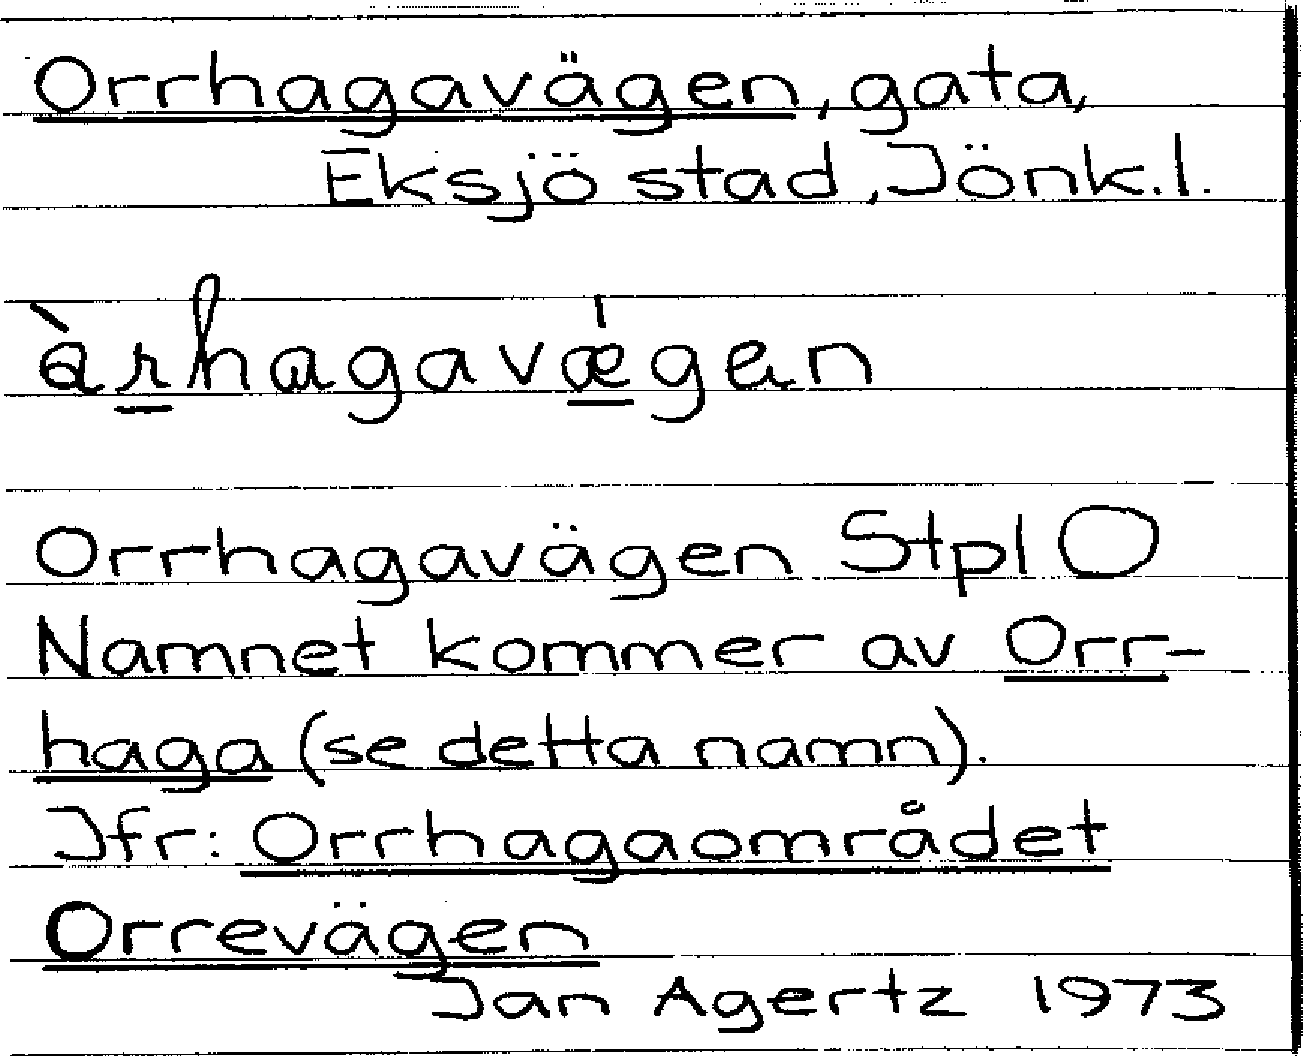 Orrhagavägen, gata,
Eksjö stad, Jönk.l.
àrhagavǽgen
Orrhagavägen Stpl O
Namnet kommer av Orr-
haga (se detta namn).
Jfr: Orrhagaområdet
Orrevägen
Jan Agertz 1973